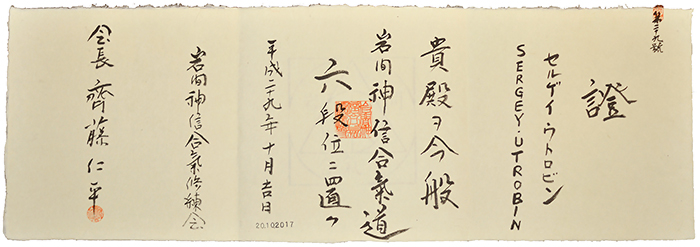 第二十九號
證
セルゲイ・ウトロビン
SERGEY・UTROBIN
貴殿ヲ今般
岩间神信合氣道
六段位ニ置ク
平成二九年十月吉日
20.10.2017
岩间神信合氣修練会
会長 齊藤仁平